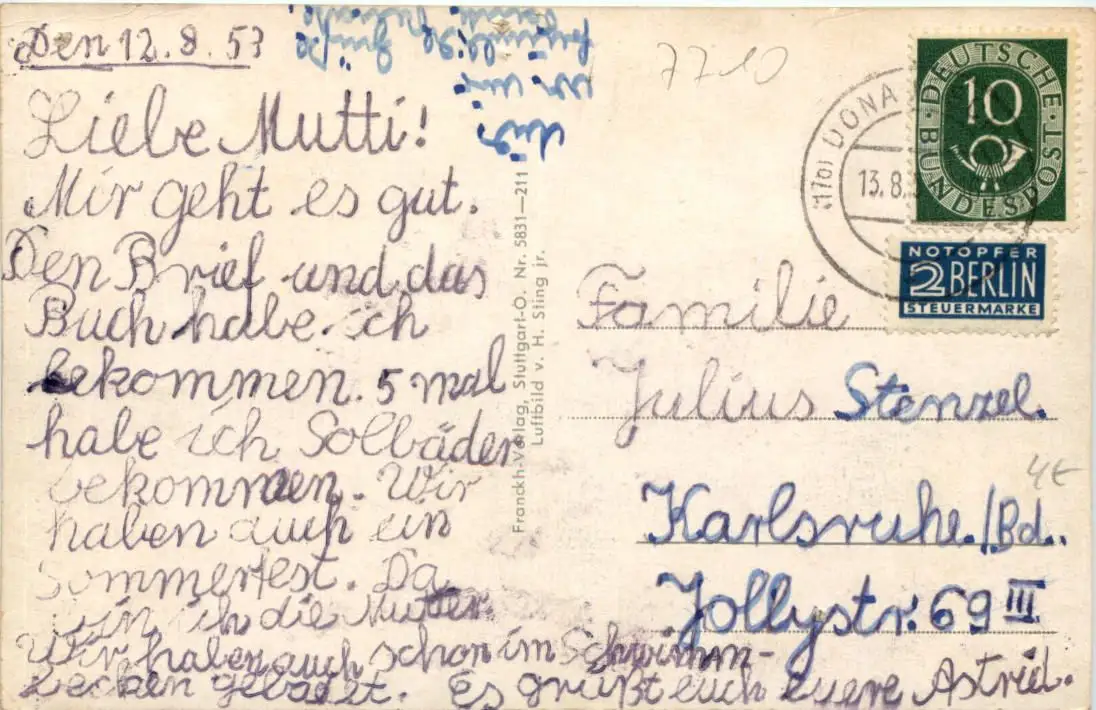 Den 12.8.53
Liebe Mutti!
Mir geht es gut.
Den Brief und das
Buch habe ich
bekommen. 5 mal
habe ich Solbäder
bekommen. Wir
haben auch ein
Sommerfest. Da
bin ich die Mutter.
Wir haben auch schon im Schwimm-
becken gebadet. Es grüßt euch euere Astrid.
freundliche Grüße
7710
Franckh-Verlag, Stuttgart-O. Nr. 5831—211
Luftbild v. H. Sting jr.
(17b) DONA
13.8.
DEUTSCHE
10
BUNDESPOST
NOTOPFER
2 BERLIN
STEUERMARKE
Familie
Julius Stenzel.
4€
Karlsruhe./Bd..
Jollystr. 69 III